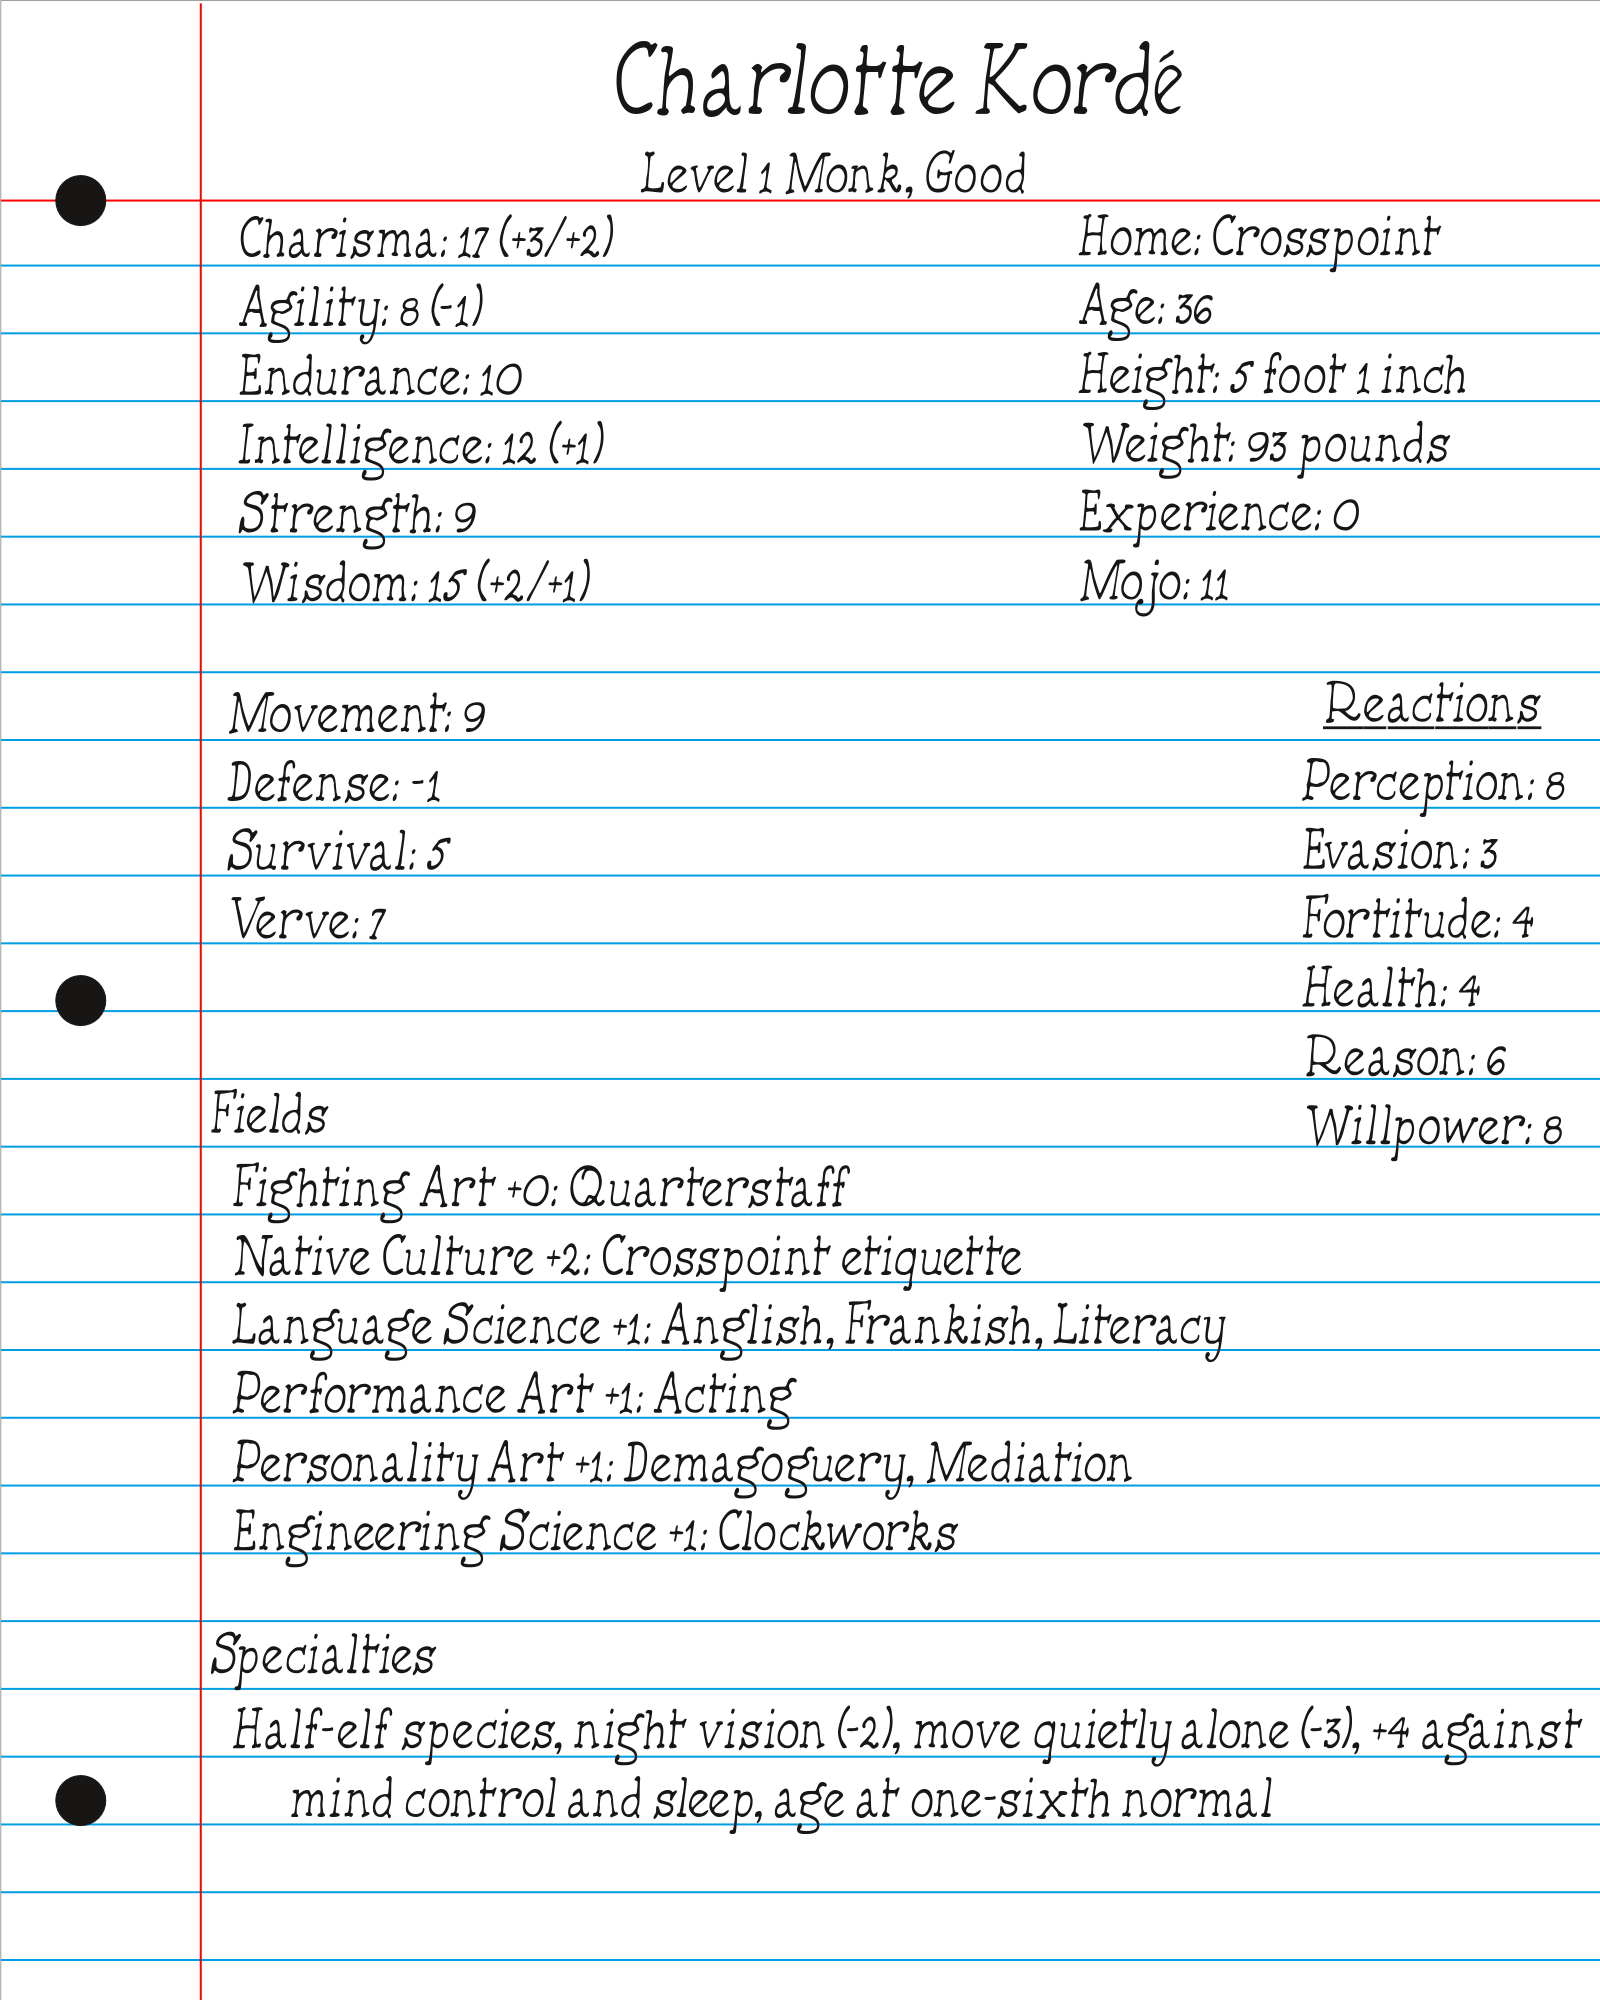 Charlotte Kordé
Level 1 Monk, Good
Charisma: 17 (+3/+2)
Agility: 8 (-1)
Endurance: 10
Intelligence: 12 (+1)
Strength: 9
Wisdom: 15 (+2/+1)
Home: Crosspoint
Age: 36
Height: 5 foot 1 inch
Weight: 93 pounds
Experience: 0
Mojo: 11
Movement: 9
Defense: -1
Survival: 5
Verve: 7
Reactions
Perception: 8
Evasion: 3
Fortitude: 4
Health: 4
Reason: 6
Willpower: 8
Fields
Fighting Art +0: Quarterstaff
Native Culture +2: Crosspoint etiquette
Language Science +1: Anglish, Frankish, Literacy
Performance Art +1: Acting
Personality Art +1: Demagoguery, Mediation
Engineering Science +1: Clockworks
Specialties
Half-elf species, night vision (-2), move quietly alone (-3), +4 against
mind control and sleep, age at one-sixth normal